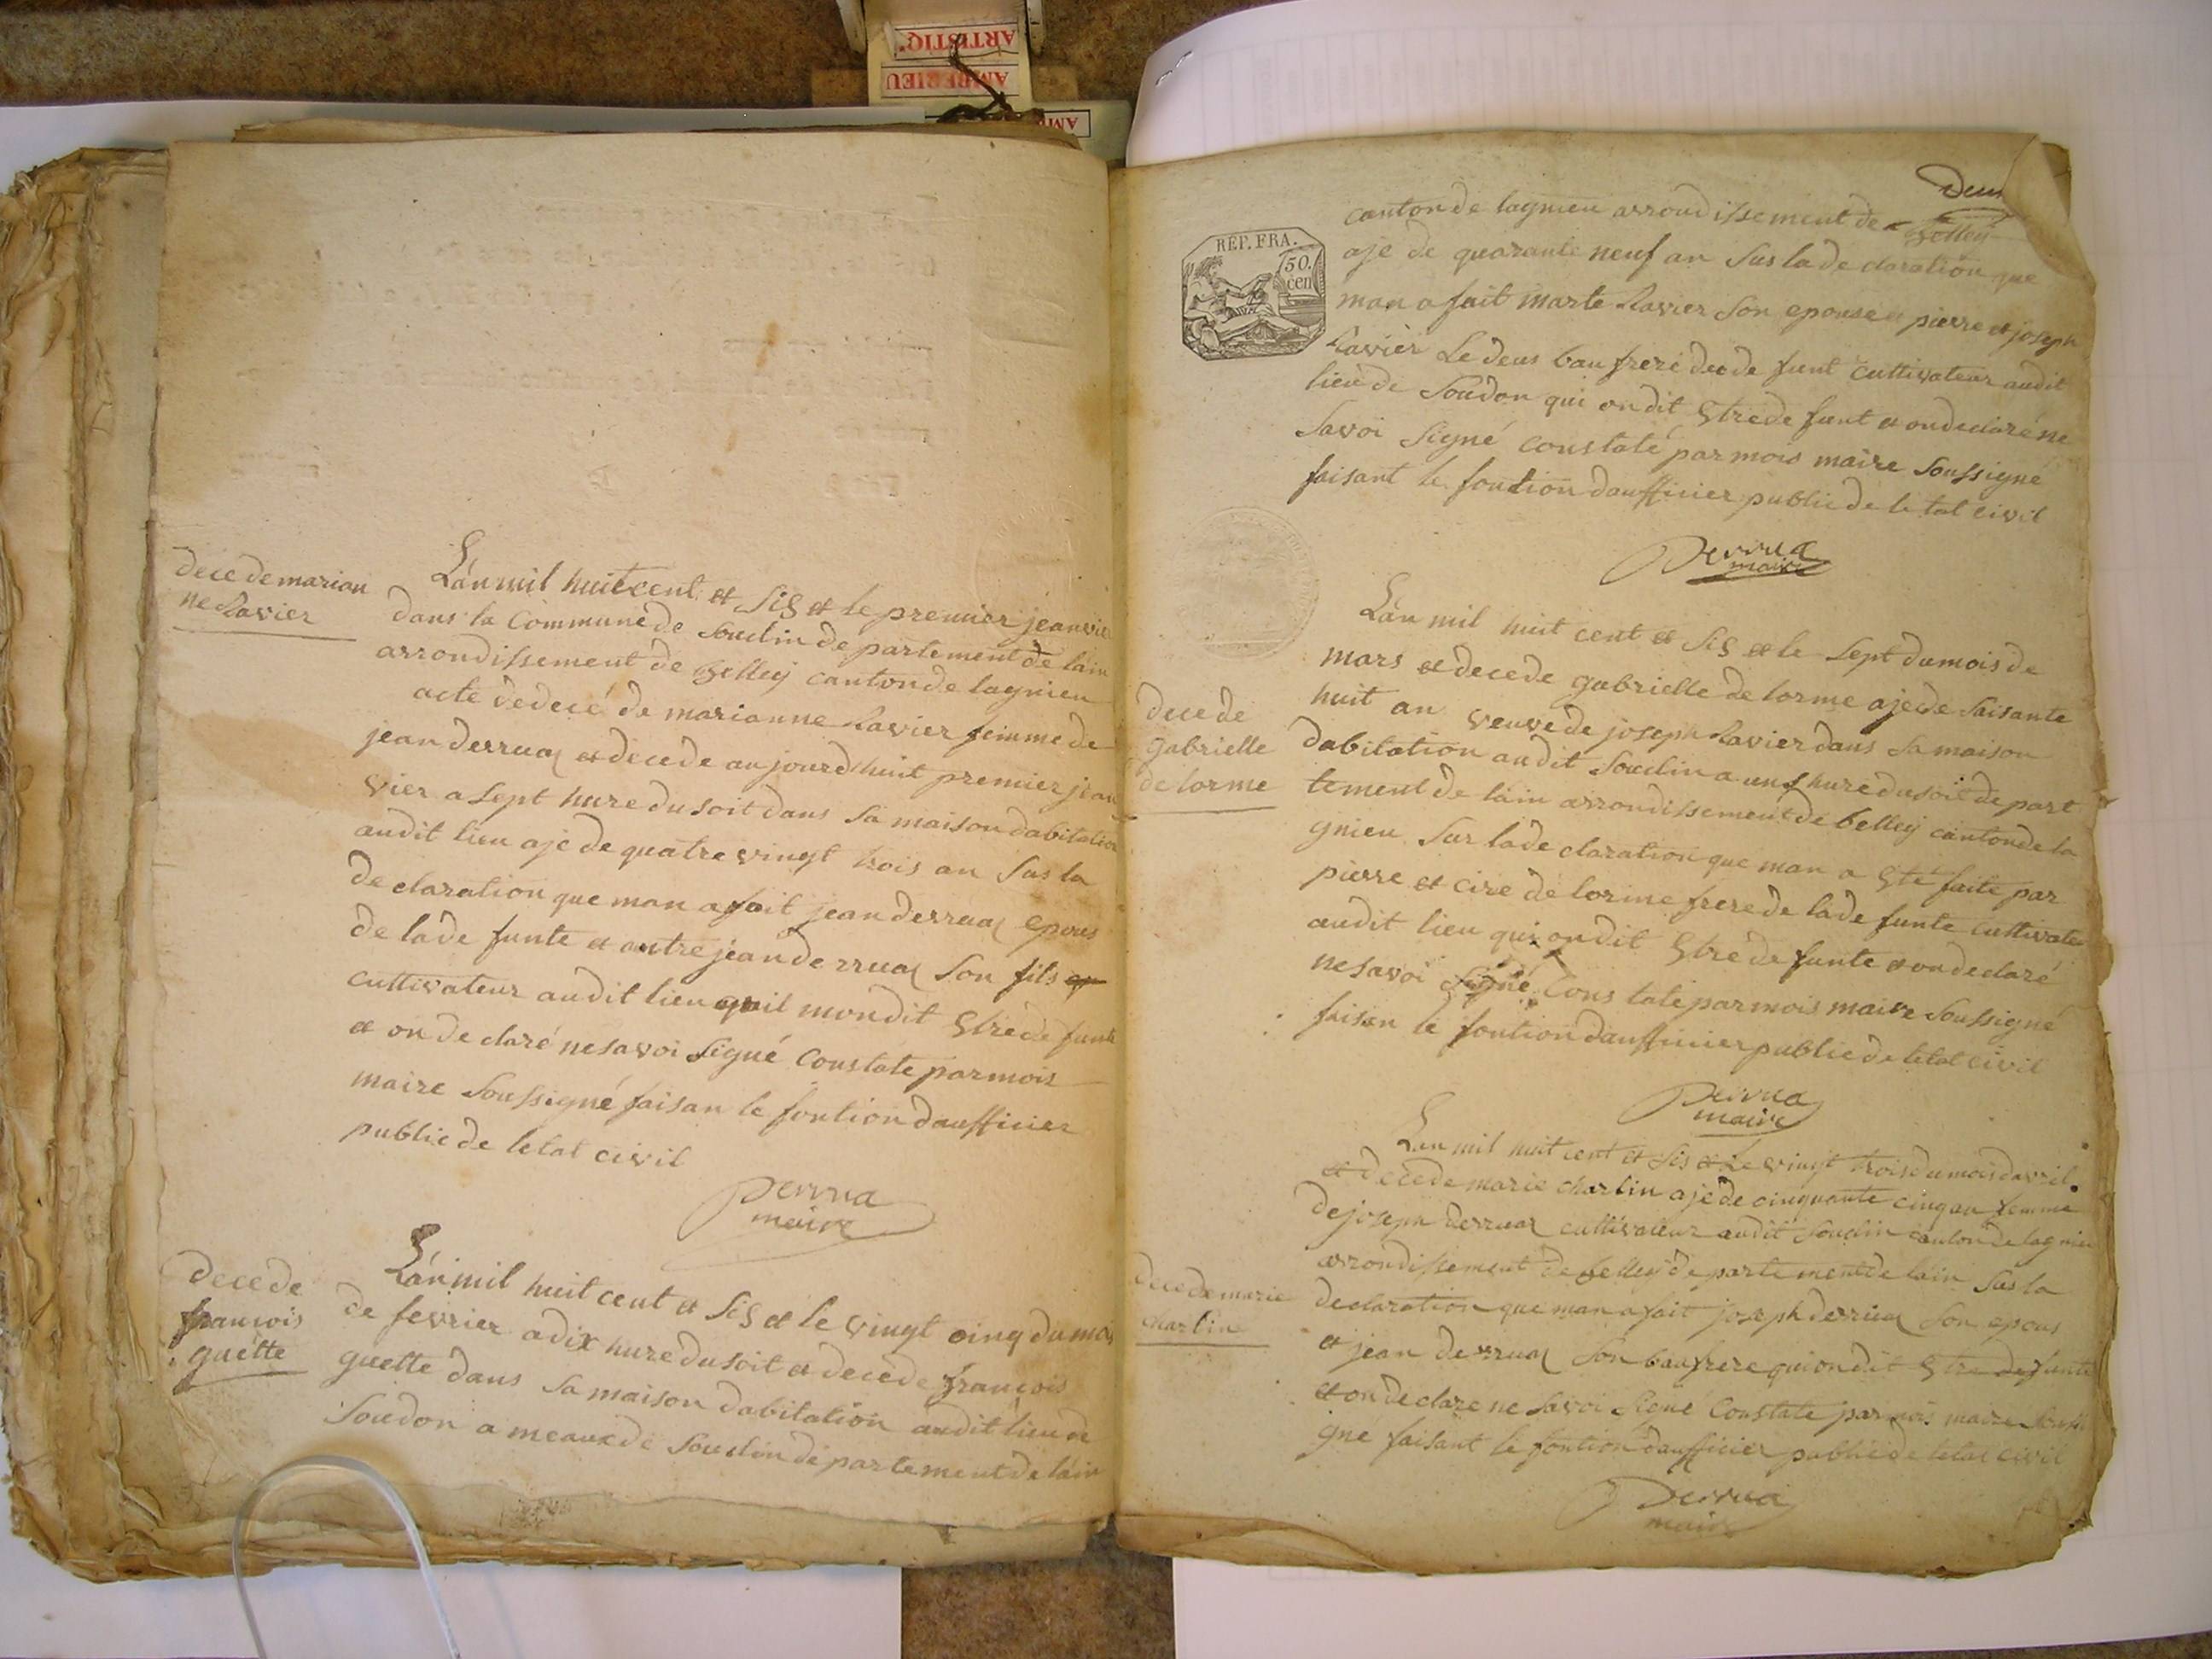 ARTISTIQ
AMBERIEU
decedemarian
neRavier
Lánmil huitcent et siS et le premier jeanvie
dans la Commune de Souclin departement de lain
arrondissement de Belley canton de lagnieu
acte dedecé de marianne Ravier femme de
jean derruaz et decede aujourdhuit premier jean
vier a sept hure du soit dans sa maison dabitation
audit lieu aje de quatre vingt trois an Sus la
declaration que man a fait jean derruaz epous
de lade funte et autre jean derruaz Son fils
cultivateur audit lieu quil mondit Etre de funte
et on declaré nesavoi Signé Constate par mois
maire Soussigné faisan le fontion daufficier
public de letat civil
Derrua
maire
decede
francois
guette
Lánmil huit cent et SiS et le vingt cinq du mois
de fevrier a dix hure du soit et decede francois
guette dans Sa maison dabitation audit lieu de
Soudon a meaux de Souclin departement de lain
Deux
RÉP. FRA.
50.
cen
canton de lagnieu arroudissement de Belley
aje de quarante neuf an Sus la declaration que
man a fait marte Ravier Son epouse et pierre et joseph
Ravier Le deus baufrere dede funt cultivateur audit
lieu de Soudon qui ondit Etre de funt et ondeclaré ne
Savoi Signé constaté par mois maire Soussigné
faisant le fontion daufficier public de letat civil
Derrua
maire
decede
Gabrielle
de lorme
Lán mil huit cent et SiS et le Sept dumois de
mars et decede gabrielle de lorme aje de Saisante
huit an veuve de joseph Ravier dans Sa maison
dabitation audit Souclin a uns hure du soit depart
tement de lain arrondissement de belley canton de la
gnieu Sur la declaration que man a Eté faite par
pierre et cire de lorme frere de lade funte cultivateu
audit lieu qui ondit Etre de funte et ondeclaré
nesavoi Signé Constaté par mois maire Soussigné
faisan le fontion daufficier public de letat civil
Derrua
maire
decede marie
charlin
Lan mil huit cent et Sis et Le vingt trois du mois davril
et decede marie charlin aje de cinquante cinq an femme
de joseph derruaz cultivateur audit Souclin canton de lagnieu
arrondissement de belley departement de lain Sus la
declaration que man a fait joseph derruaz Son epous
et jean derruaz Son baufrere qui ondit Etre de funte
et on declare ne Savoi Signé Constate par mois maire Soussi
gné faisant le fontion daufficier public de letat civil
Derrua
maire